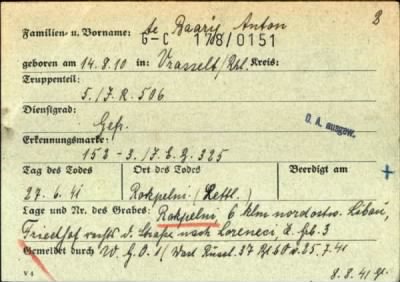 8
Familien- u. Vorname: de Baarij Anton
G-C 178/0151
geboren am 14.8.10 in: Vrasselt/Rhl. Kreis:
Truppenteil:
5./J.R. 506
Dienstgrad:
Gefr.
D. A. ausgew.
Erkennungsmarke:
152 - 3./J.E.B. 325
Tag des Todes Ort des Todes Beerdigt am
27.6.41 Rokpelni (Lettl.) +
Lage und Nr. des Grabes: Rokpelni, 6 klm nordostw. Libau,
Friedhof rechts d. Straße nach
Gemeldet durch W.G.O. 37 v. 25.7.41
V 4 8.8.41